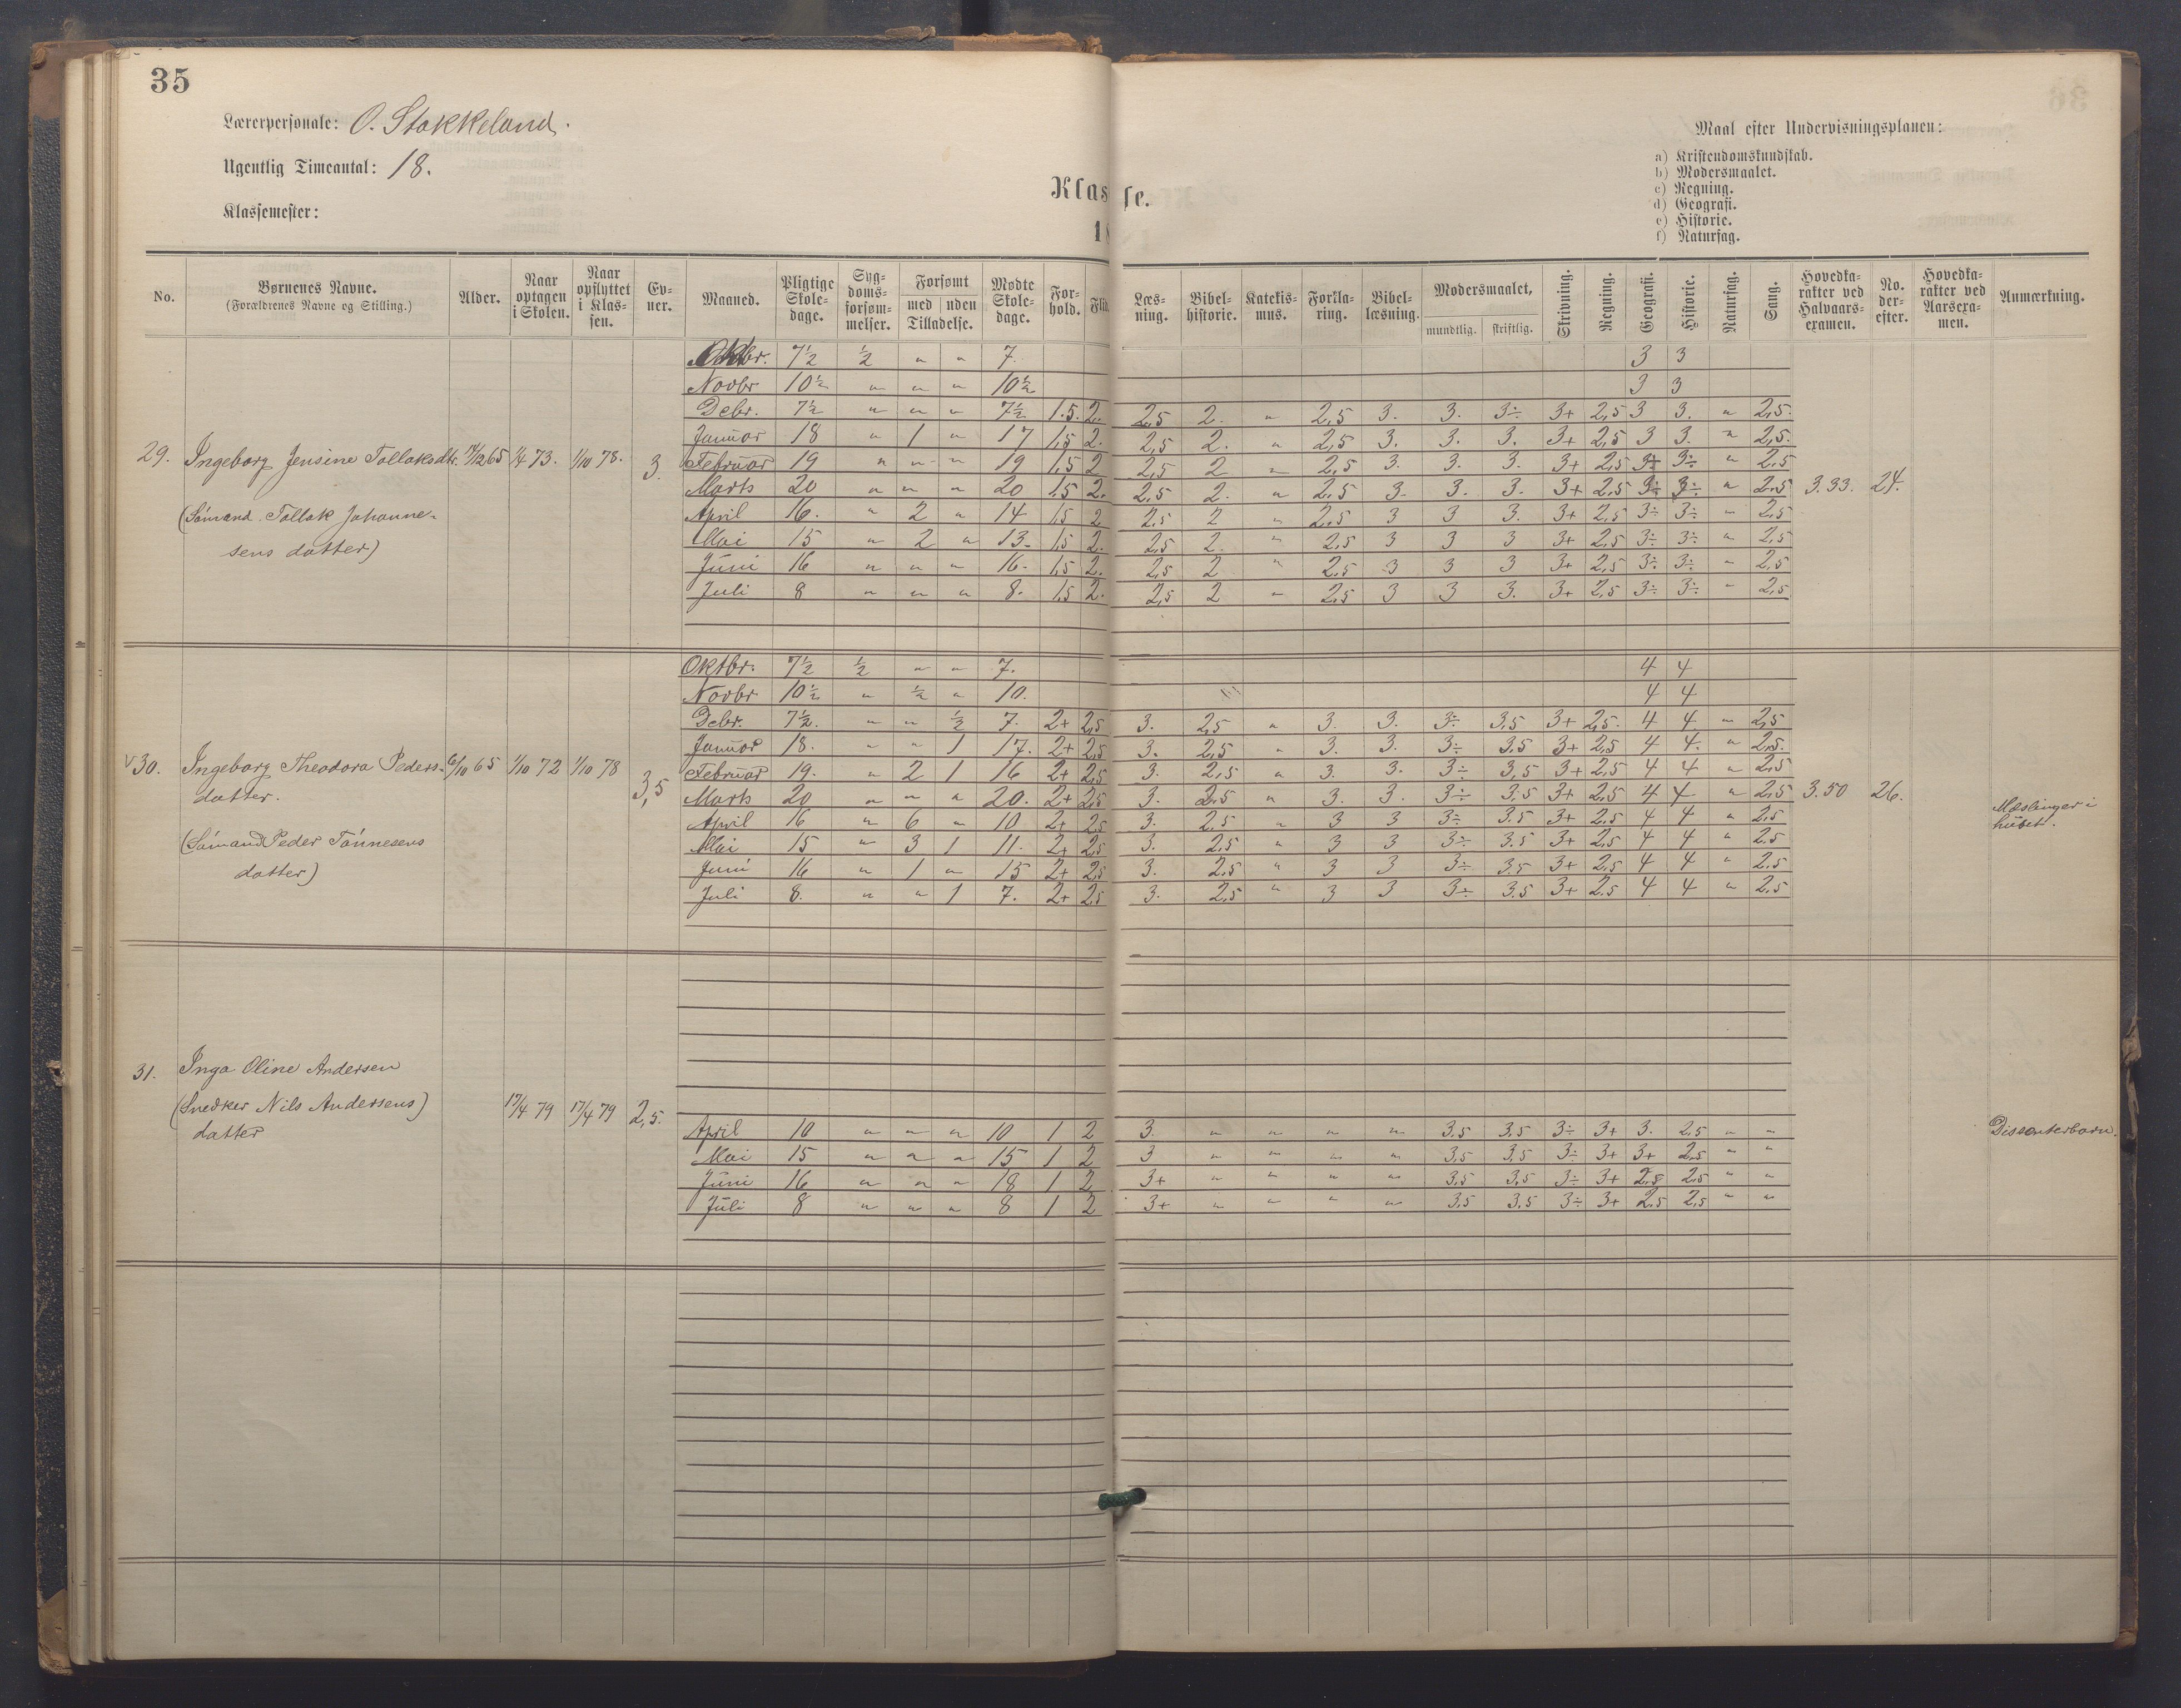 35
Lærerpersonale: O. Stokkeland.
Ugentlig Timeantal: 18.
Klassemester:
Klasse.
18
Maal efter Undervisningsplanen:
a) Kristendomskundskab.
b) Modersmaalet.
c) Regning.
d) Geografi.
e) Historie.
f) Naturfag.
No. Børnenes Navne. (Forældrenes Navne og Stilling.) Alder. Naar optagen i Skolen. Naar opflyttet i Klassen. Evner. Maaned. Pligtige Skoledage. Sygdomsforsømmelser. Forsømt med uden Tilladelse. Mødte Skoledage. Forhold. Flid. Læsning. Bibelhistorie. Katekismus. Forklaring. Bibellæsning. Modersmaalet, mundtlig. skriftlig. Skrivning. Regning. Geografi. Historie. Naturfag. Sang. Hovedkarakter ved Halvaarsexamen. No. derefter. Hovedkarakter ved Aarsexamen. Anmærkning.
Oktbr. 7½ ½ " " 7. 3 3
Novbr 10½ " " " 10½ 3 3
Debr. 7½ " " " 7½ 1.5. 2. 2,5 2. " 2,5 3. 3. 3÷ 3+ 2,5 3 3. " 2,5.
Januar 18 " 1 " 17 1,5 2. 2,5 2. " 2,5 3. 3. 3. 3+ 2,5 3 3. " 2,5.
29. Ingeborg Jensine Tollaksdtr. 1/4 73. 1/10 78. 3. Februar 19 " " " 19 1,5 2 2,5 2 " 2,5 3. 3. 3. 3+ 2,5 3÷ 3÷ " 2,5
Marts 20 " " " 20 1,5 2. 2,5 2. " 2,5 3. 3. 3. 3+ 2,5 3÷ 3÷ " 2,5 3.33. 24.
(Sømand Tollak Johanne- April 16. " 2 " 14 1,5 2 2,5 2 " 2,5 3 3 3. 3+ 2,5 3÷ 3÷ " 2,5
sens datter) Mai 15 " 2 " 13. 1,5 2. 2,5 2. " 2,5 3 3 3 3+ 2,5 3÷ 3÷ " 2,5
Juni 16 " " " 16. 1,5 2. 2,5 2 " 2,5 3 3 3 3+ 2,5 3÷ 3÷ " 2,5
Juli 8 " " " 8. 1,5 2. 2,5 2 " 2,5 3 3 3. 3+ 2,5 3÷ 3÷ " 2,5
Oktbr. 7½ ½ " " 7. 4 4
Novbr 10½ " ½ " 10. 4 4
Debr. 7½. " " ½ 7. 2+ 2,5 3. 2,5 " 3. 3. 3÷ 3,5 3+ 2,5. 4 4 " 2,5
Januar 18. " " 1 17. 2+ 2,5 3. 2,5 " 3. 3. 3÷ 3,5 3+ 2,5 4 4. " 2,5.
30. Ingeborg Theodora Peders- 6/10 65 1/10 72 1/10 78 3,5 Februar 19. " 2 1 16 2+ 2,5 3. 2,5 " 3. 3. 3÷ 3,5 3+ 2,5 4 4 " 2,5
datter. Marts 20 " " " 20. 2+ 2,5 3. 2,5 " 3. 3. 3÷ 3,5 3+ 2,5 4 4 " 2,5 3.50 26. Mæslinger i
April 16 " 6 " 10 2+ 2,5 3. 2,5 " 3 3 3÷ 3.5 3+ 2,5 4 4 " 2,5 huset.
(Sømand Peder Tønnesens Mai 15 " 3 1 11. 2+ 2,5 3. 2,5 " 3 3 3÷ 3.5 3+ 2,5 4 4 " 2,5
datter) Juni 16 " 1 " 15 2+ 2,5 3. 2,5 " 3 3 3÷ 3.5 3+ 2,5 4 4 " 2,5
Juli 8. " " 1 7. 2+ 2,5 3. 2,5 " 3 3 3÷ 3.5 3+ 2,5 4 4 " 2,5
31. Inga Oline Andersen
(Snedker Nils Andersens) 17/4 79 17/4 79 2,5.
datter April 10 " " " 10 1 2 3. " " " " 3,5 3,5 3÷ 3+ 3. 2,5 " " Dissenterbarn.
Mai 15 " " " 15 1 2 3 " " " " 3,5 3,5 3÷ 3+ 3+ 2,5 " "
Juni 16 " " " 18 1 2 3+ " " " " 3,5 3,5 3÷ 3+ 2,5 2,5 " "
Juli 8 " " " 8 1 2 3+ " " " " 3,5 3,5 3÷ 3+ 2,5 2,5 " "